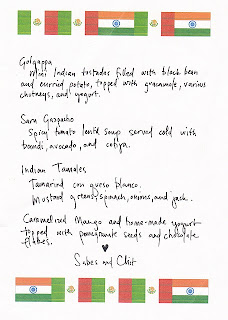 Golgappa
Mini Indian tostadas filled with black bean
and curried potato, topped with guacamole, various
chutneys, and yogurt.
Sara Gazpacho
Spicy tomato lentil soup served cold with
boondi, avocado, and cotija.
Indian Tamales
Tamarind con queso blanco.
Mustard greens, spinach, onions, and jack.
Caramelized Mango and home-made yogurt
topped with pomegranate seeds and chocolate
flakes.
and